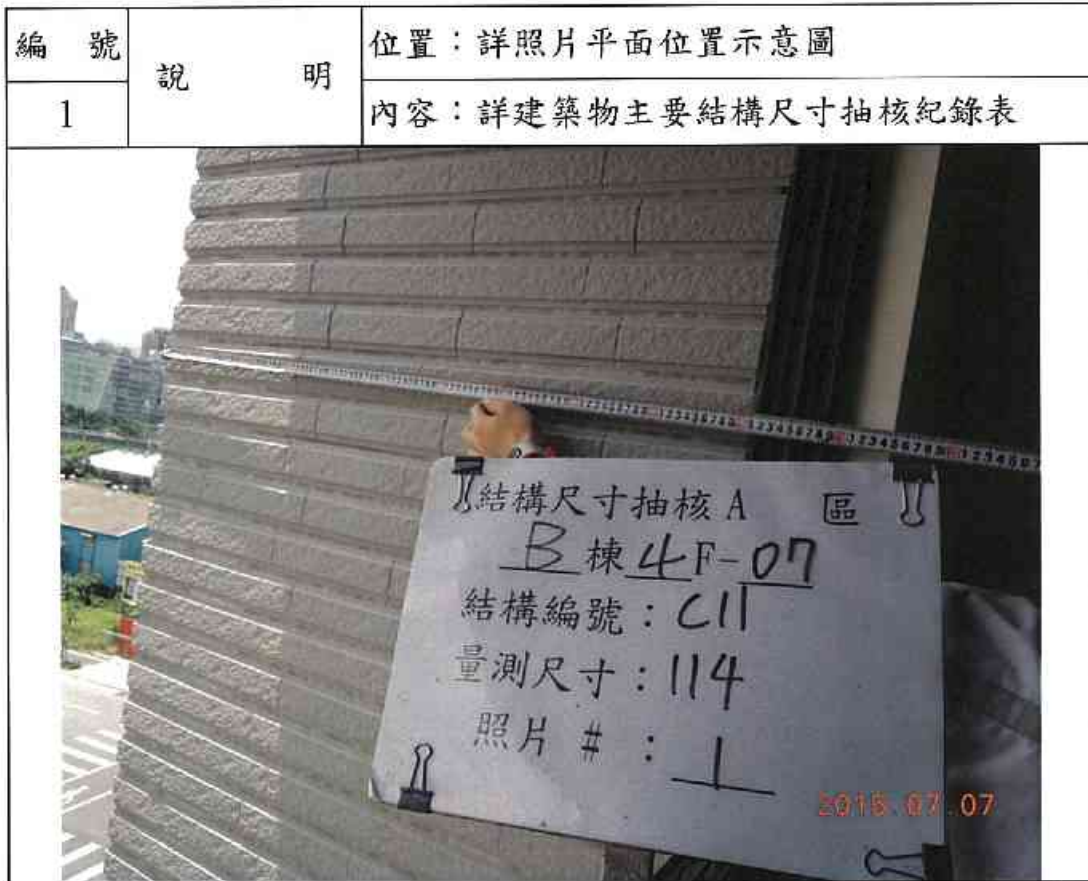 編 號
說 明
位置：詳照片平面位置示意圖
1
內容：詳建築物主要結構尺寸抽核紀錄表
結構尺寸抽核A 區
B棟4F-07
結構編號：C11
量測尺寸：114
照片 # ：1
2015.07.07